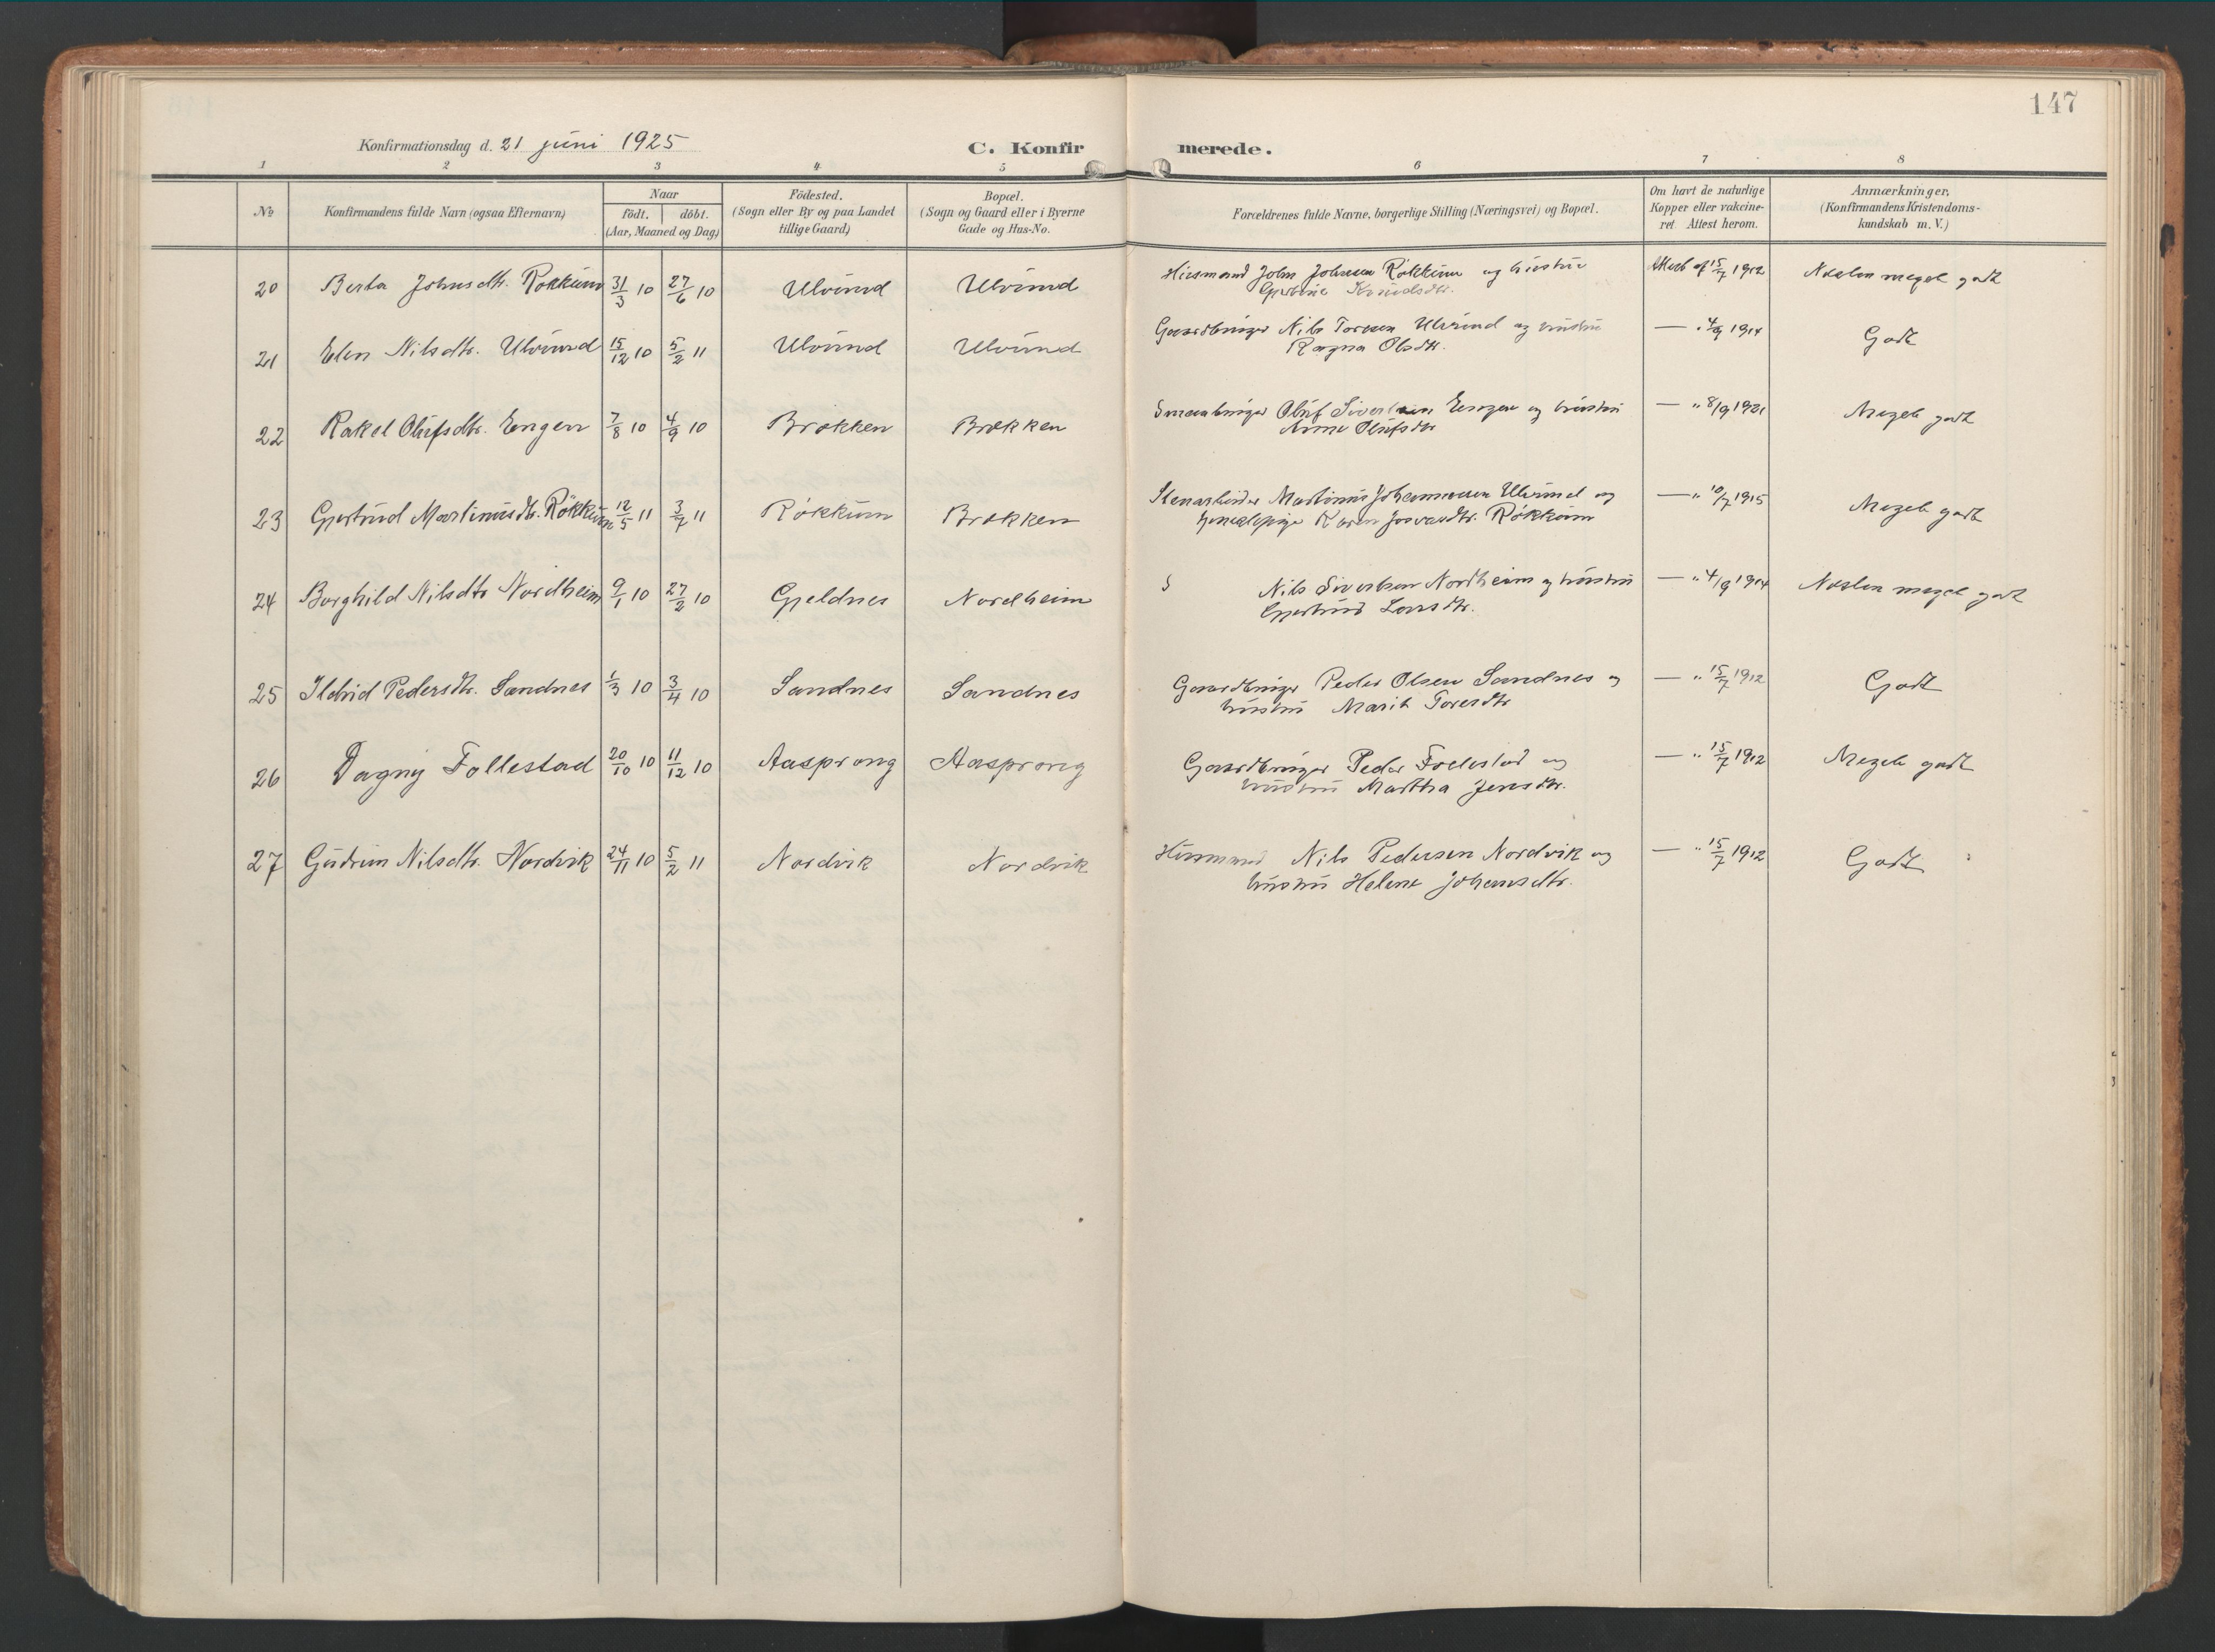 147
Konfirmationsdag d. 21 juni 1925 C. Konfirmerede.
1 2 3 4 5 6 7 8
No Konfirmandens fulde Navn (ogsaa Efternavn) Naar födt. döbt. (Aar, Maaned og Dag) Födested. (Sogn eller By og paa Landet tillige Gaard) Bopæl. (Sogn og Gaard eller i Byerne Gade og Hus-No. Forældrenes fulde Navne, borgerlige Stilling (Næringsvei) og Bopæl. Om havt de naturlige Kopper eller vakcineret Attest herom. Anmærkninger, (Konfirmandens Kristendomskundskab m. V.)
20 Berta Johnsdtr. Røkkum 31/3 10 27/6 10 Ulvund Ulvund Husmand John Johnsen Rökkum og hustru Attest af 15/7 1912 Næsten meget godt
Gjertine Knudsdtr.
21 Elen Nilsdtr. Ulvund 15/12 10 5/2 11 Ulvund Ulvund Gaardbruger Nils Toresen Ulvund og hustru — " 4/9 1914 Godt
Ragna Olsdtr.
22 Rakel Olufsdtr. Engen 7/8 10 4/9 10 Brøkken Brøkken Oluf Sivertsen Engen og hustru — " 8/9 1921 Meget godt
Anne Olufsdtr
23 Gjertrud Martinusdtr. Rökkum 12/5 11 3/7 11 Rökkum Brøkken Stenarbeider Martinus Johannessen Ulvund og — " 10/7 1915 Meget godt
Karen Rökkum
24 Borghild Nilsdtr Nordheim 9/1 10 27/2 10 Gjeldnes Nordheim S Nils Sivertsen Nordheim og hustru — " 4/9 1914 Næsten meget godt
Gjertrud Larsdtr.
25 Ildrid Pedersdtr. Sandnes 1/3 10 3/4 10 Sandnes Sandnes Gaardbruger Peder Olsen Sandnes og — " 15/7 1912 Godt
hustru Marit Toresdtr
26 Dagny Follestad 20/10 10 11/12 10 Aasprong Aasprong Gaardbruger Peder Follestad og — " 15/7 1912 Meget godt
hustru Martha Jensdtr.
27 Gudrun Nilsdtr. Nordvik 24/11 10 5/2 11 Nordvik Nordvik Husmand Nils Pedersen Nordvik og — " 15/7 1912 Godt
hustru Helene Johansdtr.